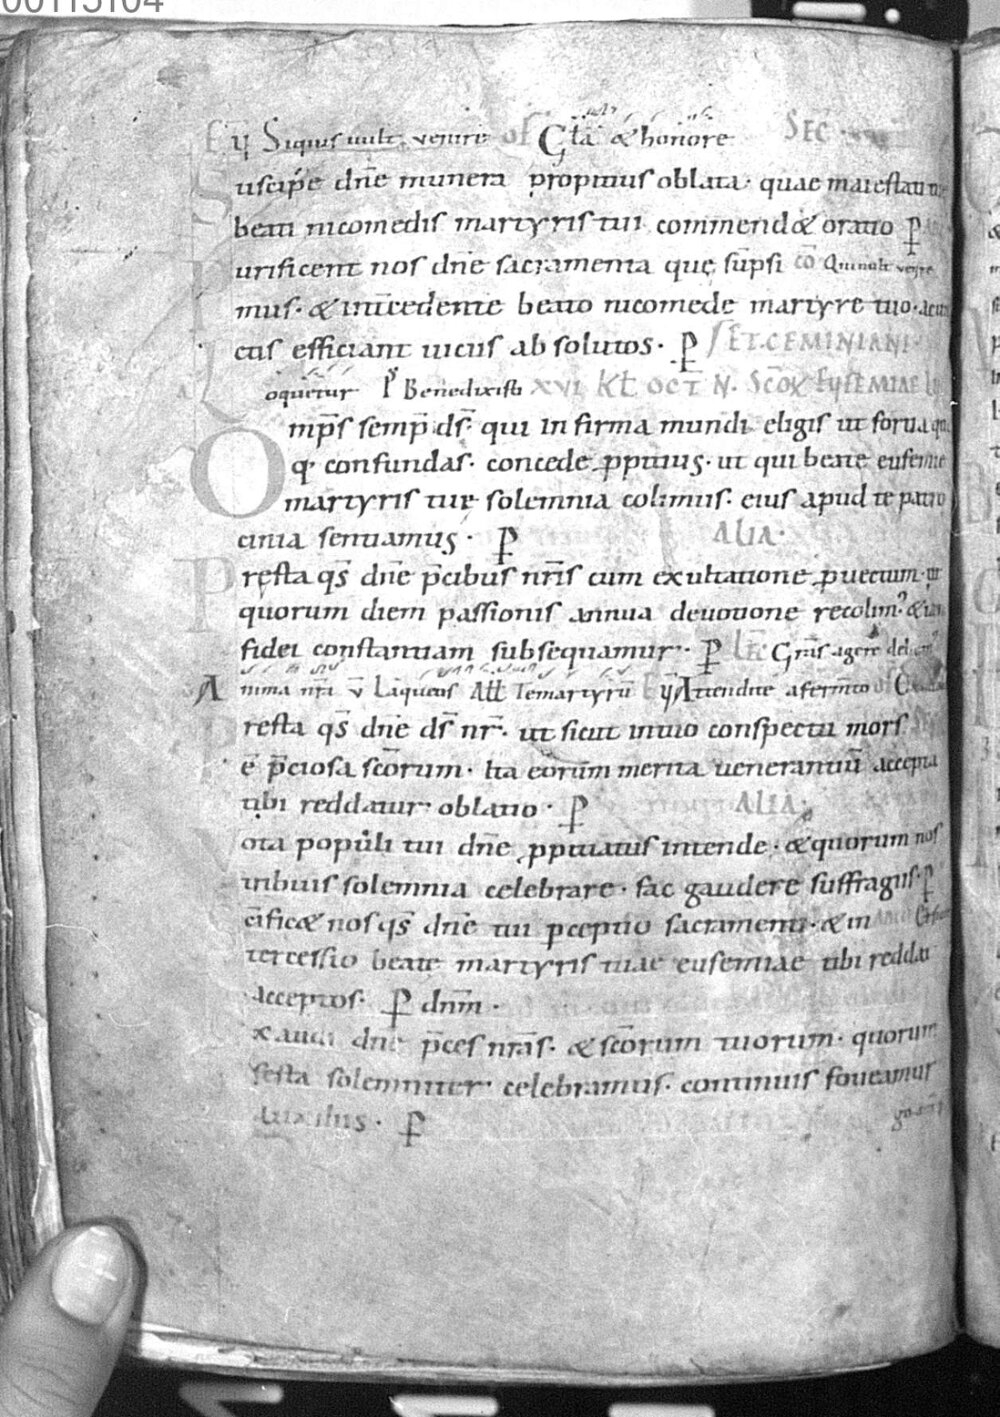 00115104
Eꝟ Siquis uult venire of Gła & honore SEC
Suscipe dn̄e munera propitius oblata· quae maiestati
beati nicomedis martyris tui commend& oratio P̄
urificent nos dn̄e sacramenta que sūpsi cō Qui uult venire
mus· & int̄cedente beato nicomede martyre tuo·
ctis efficiant uiciis absolutos· P̄ / ET.CEMINIANI·
Loquetur P̊ Benedixisti XVI KL OCT N. SC̄OR EUFEMIAE
Omp̄s semp̄ ds̄· qui infirma mundi eligis ut fortia
q; confundas· concede ꝓpitius· ut qui beate eufemie
martyris tue solemnia colimus· eius apud te patro
cinia sentiamus· P̄ ALIA·
Presta q̄s dn̄e p̄cibus nr̄is cum exultatione ꝓuectum· ut
quorum diem passionis annua deuotione recolim; &
fidei constantiam subsequamur· P̄ LEC̄ Gras̄ agere
Anima nr̄a v̄ Laqueus Aɫɫ Te martyrū Eꝟ Attendite a fermto of
resta q̄s dn̄e ds̄ nr̄· ut sicut in tuo conspectu mors
ē p̄ciosa sc̄orum· ita eorum merita uenerantiū accepta
tibi reddatur oblatio· P̄ ALIA;
Vota populi tui dn̄e ꝓpitiatus intende· & quorum nos
tribuis solemnia celebrare· fac gaudere suffragiis· P̄
cific& nos q̄s dn̄e tui p̄ceptio sacramenti· & in
tercessio beate martyris tuae eufemiae tibi reddat
acceptos· P̄ dnm̄·
xaudi dn̄e p̄ces nr̄as· & sc̄orum tuorum· quorum
festa solemniter celebramus· continuis foueamur
auxiliis· P̄